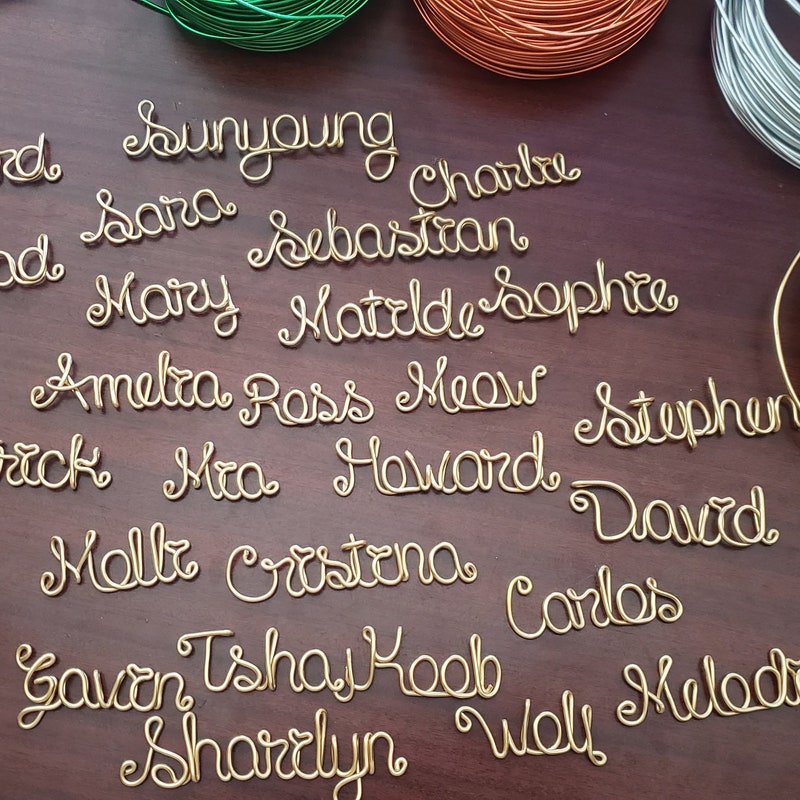 Sunyoung
rd
Charlie
Sara
Sebastian
ad
Mary
Matilde
Sophie
Amelia
Ross
Meow
Stephen
rick
Mia
Howard
David
Molli
Cristina
Carlos
Gavin
Tshaj Koob
Melodi
Sharilyn
Wolf